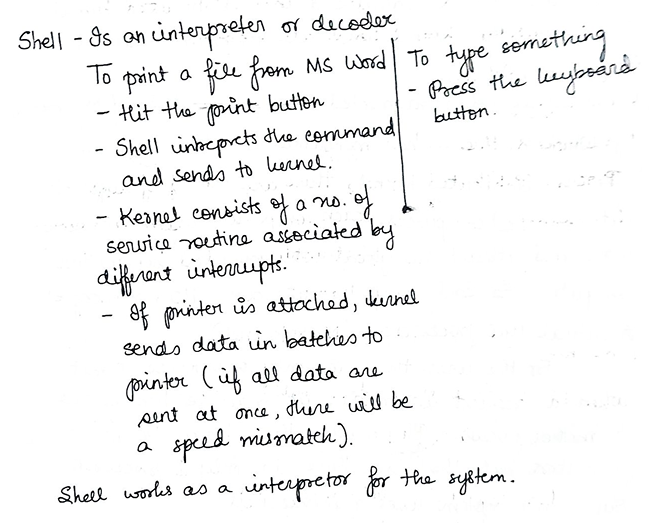 Shell - Is an interpreter or decoder
To print a file from MS Word
- Hit the print button
- Shell intreprets the command
and sends to kernel.
- Kernel consists of a no. of
service routine associated by
different interrupts.
- If printer is attached, kernel
sends data in batches to
printer (if all data are
sent at once, there will be
a speed mismatch).
To type something
- Press the keyboard
button.
Shell works as a interpretor for the system.